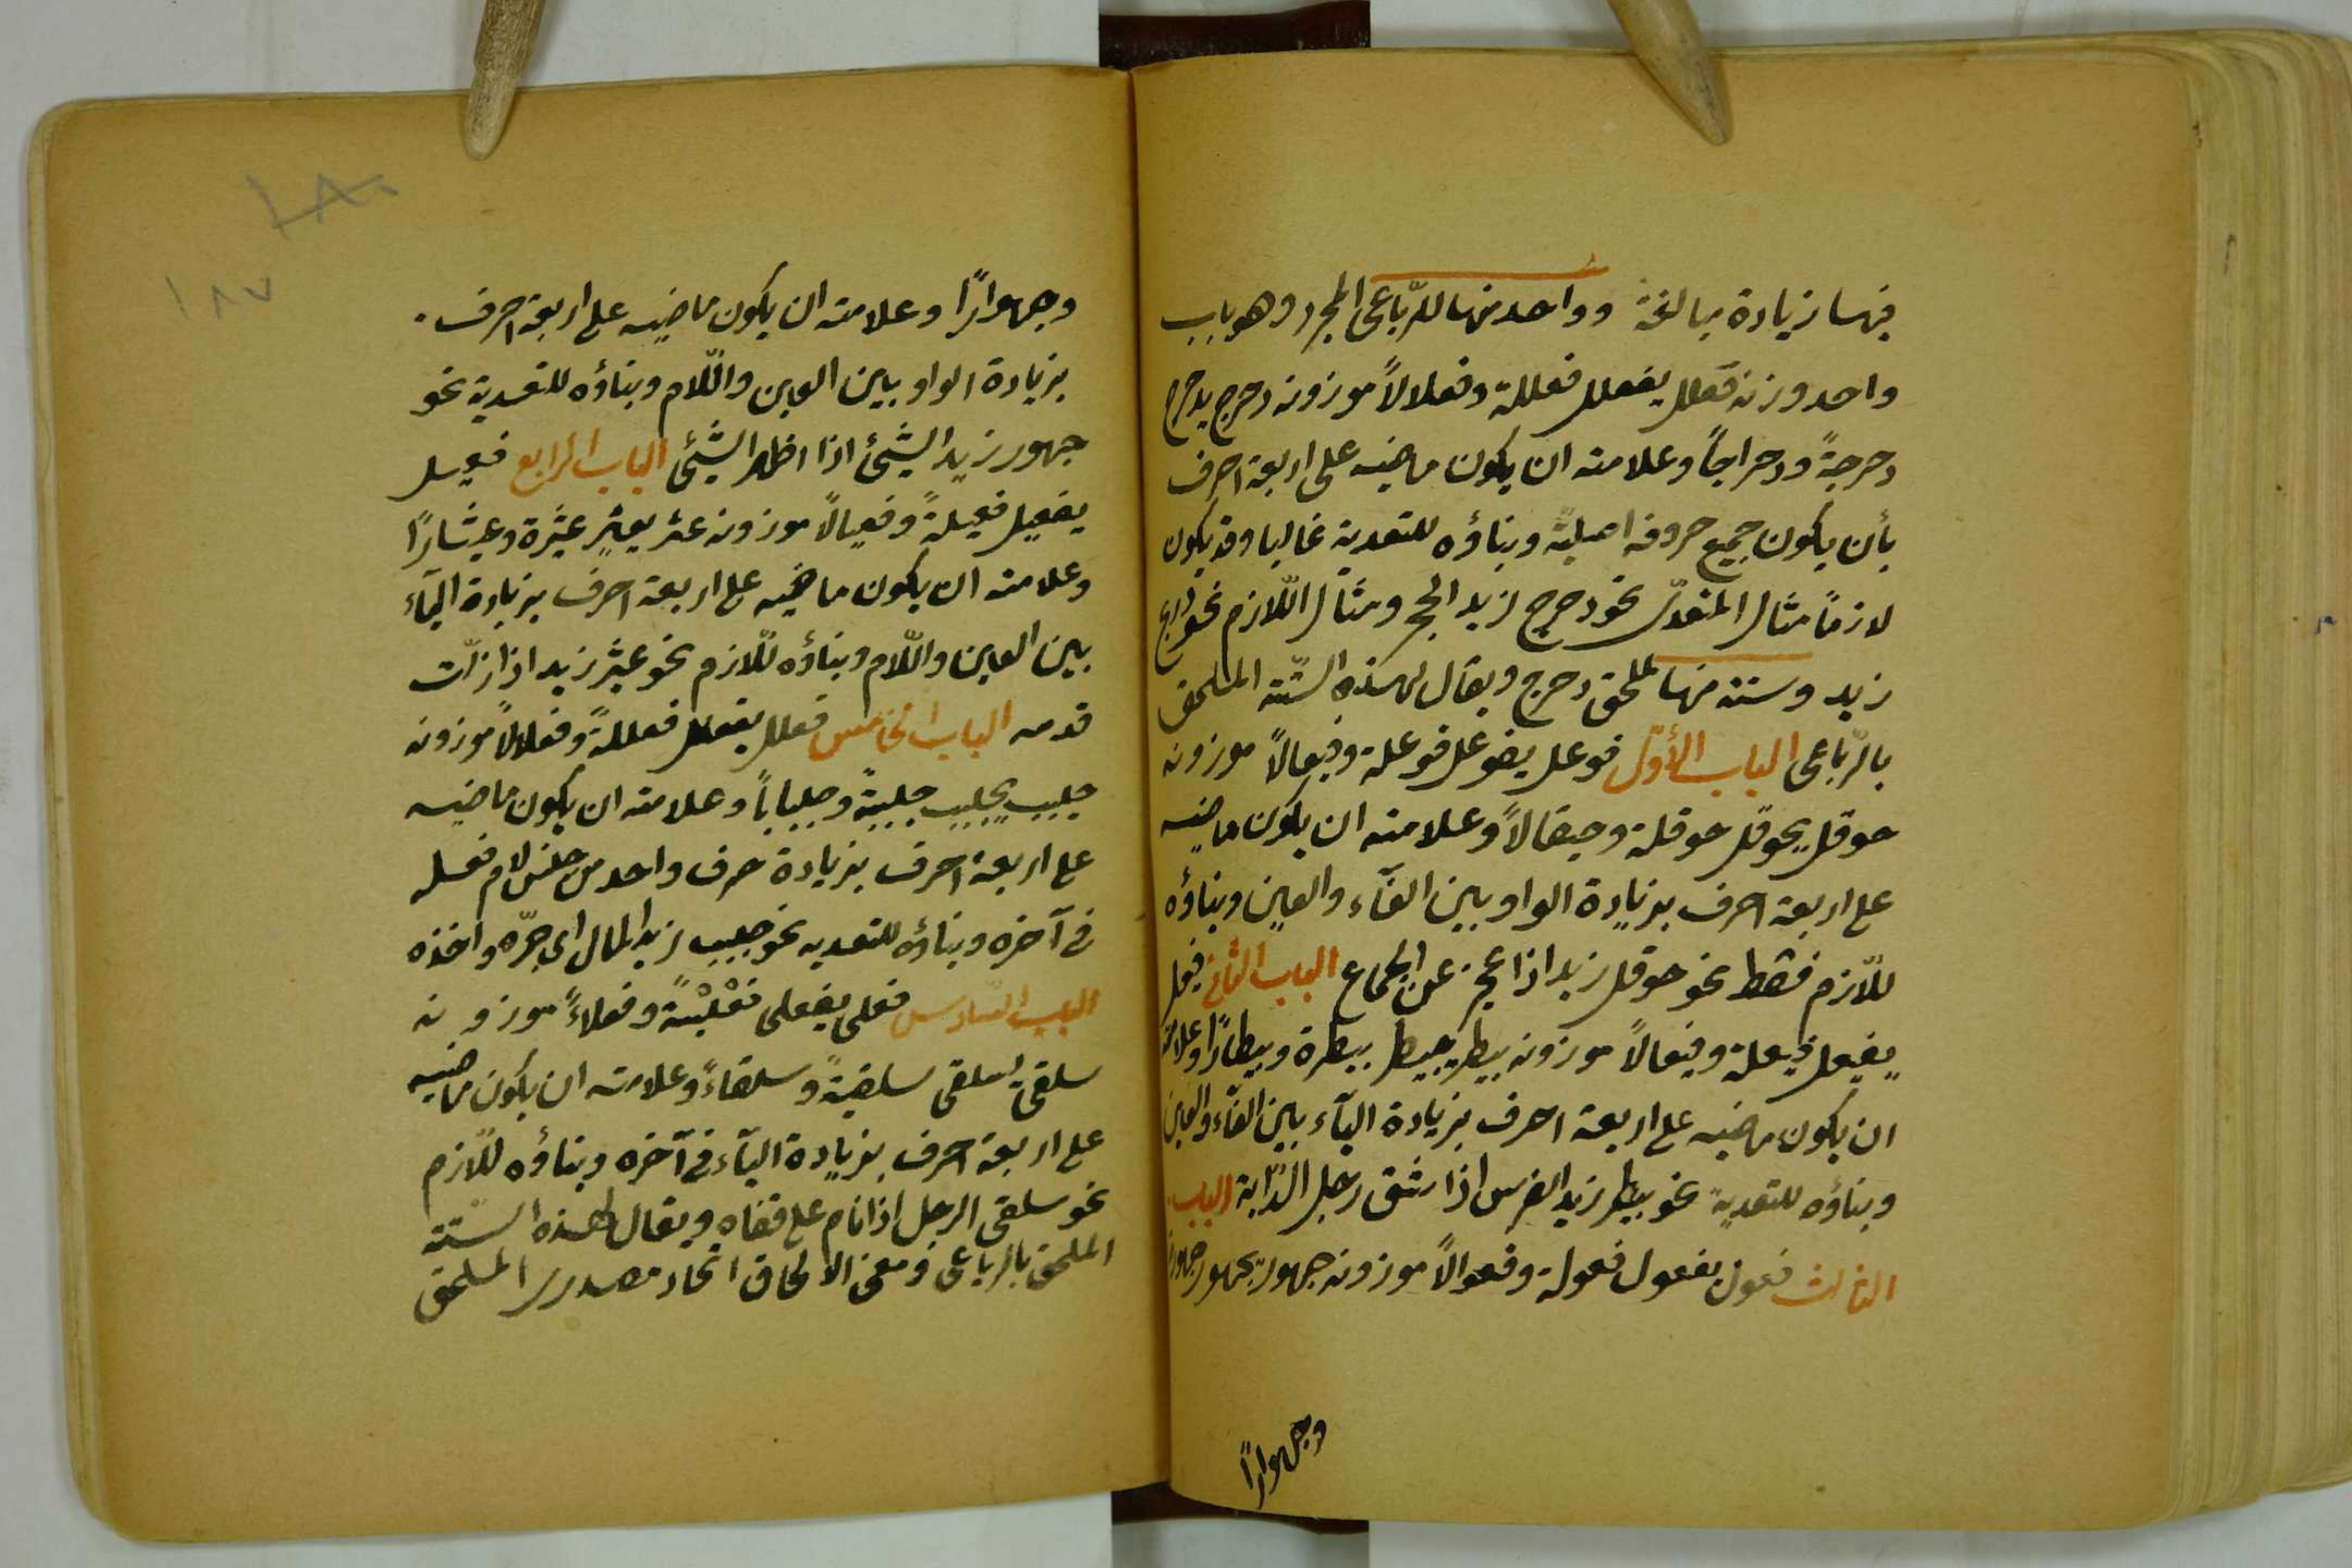 فيها زيادة مبالغة وواحد منها للرّباعى المجرد وهو باب
واحد وزنه فعلل يفعلل فعللة وفعلالاً موزونه دحرج يدحرج
دحرجةً ودحراجاً وعلامته ان يكون ماضيه على اربعة احرف
بأن يكون جميع حروفه اصليّة وبناؤه للتعدية غالبا وقد يكون
لازمًا مثال المتعدّى نحو دحرج زيد الحجر ومثال اللّازم نحو دربج
زيد وستة منها لملحق دحرج ويقال لهذه الستّة الملحق
بالرّباعى الباب الأوّل فوعل يفوعل فوعلة وفيعالاً موزونه
حوقل يحوقل حوقلة وحيقالاً وعلامته ان يكون ماضيه
على اربعة احرف بزيادة الواو بين الفآء والعين وبناؤه
للّازم فقط نحو حوقل زيد اذا عجز عن الجماع الباب الثانى فيعل
يفيعل فيعلة وفيعالاً موزونه بيطر يبيطر بيطرة وبيطارًا وعلامته
ان يكون ماضيه على اربعة احرف بزيادة اليآء بين الفآء والعين
وبناؤه للتعدية نحو بيطر زيد الفرس اذا شق رجل الدّابة الباب
الثالث فعول يفعول فعولة وفعوالاً موزونه جهور يجهور جهورة
وجهوارًا
١٨٠
١٨٧
وجهوارًا وعلامته ان يكون ماضيه على اربعة احرف
بزيادة الواو بين العين واللّام وبناؤه للتعدية نحو
جهور زيد الشّيئ اذا اظهر الشّيئ الباب الرّابع فعيل
يفعيل فعيلةً وفعيالاً موزونه عثير يعثير عثيرة وعثيارًا
وعلامته ان يكون ماضيه على اربعة احرف بزيادة اليآء
بين العين واللّام وبناؤه للّازم نحو عثير زيد اذا زلّت
قدمه الباب الخامس فعلل يفعلل فعللةً وفعلالاً موزونه
جلبب يجلبب جلببةً وجلباباً وعلامته ان يكون ماضيه
على اربعة احرف بزيادة حرف واحد من جنس لام فعله
فى آخره وبناؤه للتعديه نحو جلبب زيد المال اى جرّه واخذه
الباب السّادس فعلى يفعلى فعْليْةً وفعلاءً موزونه
سلقى يسلقى سلقيةً وسلقاءً وعلامته ان يكون ماضيه
على اربعة احرف بزيادة اليآء فى آخره وبناؤه للّازم
نحو سلقى الرجل اذا نام على قفاه ويقال لهذه السّتة
الملحق بالرباعى ومعنى الالحاق اتحاد مصدرى الملحق